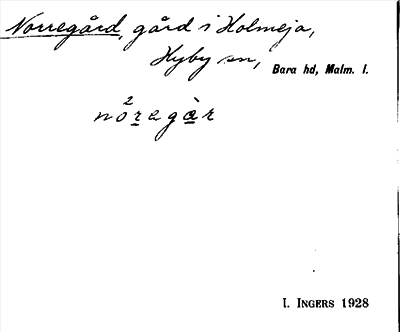 Norregård, gård i Holmeja,
Hyby sn, Bara hd, Malm. l.
nòregàr
I. INGERS 1928